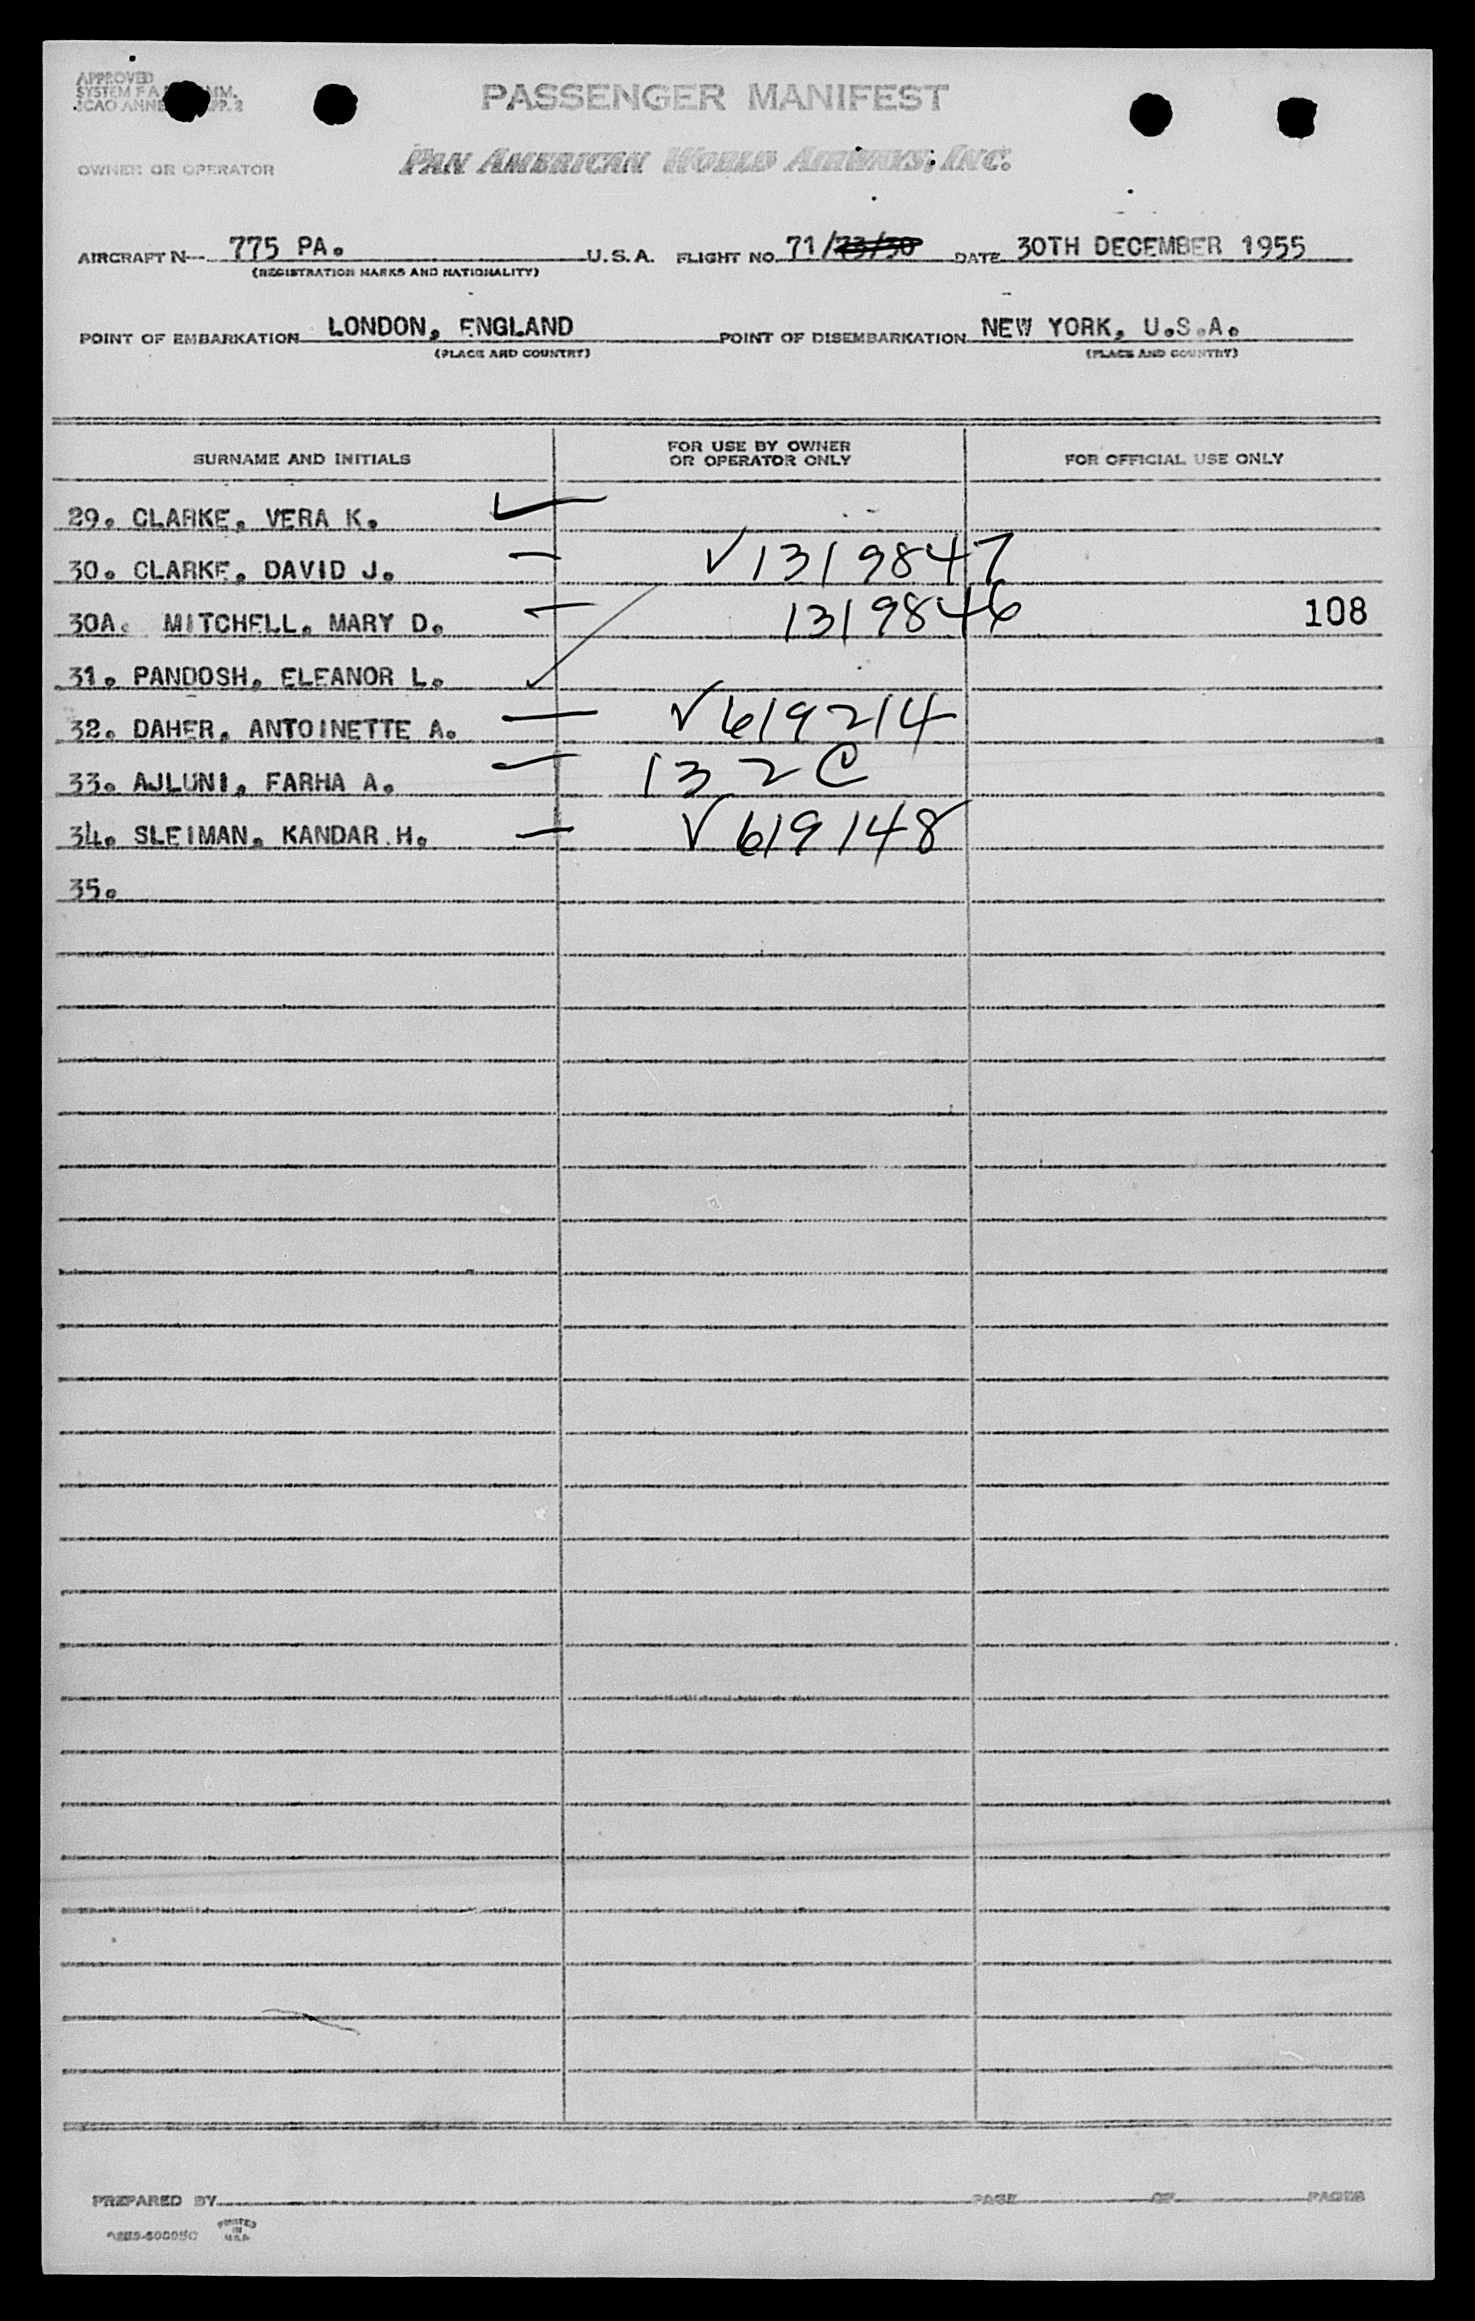 APPROVED
SYSTEM F.A. MM.
ICAO ANNE PP. 2
PASSENGER MANIFEST
OWNER OR OPERATOR PAN AMERICAN WORLD AIRWAYS, INC.
AIRCRAFT N-- 775 PA. U.S.A. FLIGHT NO. 71/73/30 DATE 30TH DECEMBER 1955
(REGISTRATION MARKS AND NATIONALITY)
POINT OF EMBARKATION LONDON, ENGLAND POINT OF DISEMBARKATION NEW YORK, U.S.A.
(PLACE AND COUNTRY) (PLACE AND COUNTRY)
SURNAME AND INITIALS FOR USE BY OWNER OR OPERATOR ONLY FOR OFFICIAL USE ONLY
29. CLARKE, VERA K. ✓
30. CLARKE, DAVID J. — ✓1319847
30A. MITCHELL, MARY D. — 1319846 108
31. PANDOSH, ELEANOR L. ✓
32. DAHER, ANTOINETTE A. — ✓619214
33. AJLUNI, FARHA A. — 132C
34. SLEIMAN, KANDAR H. — ✓619148
35.
PREPARED BY PAGE OF PAGES
PRINTED
IN
U.S.A.